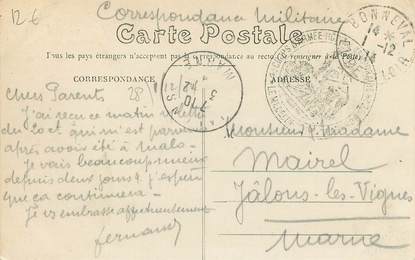 12 €
Correspondance Militaire
Carte Postale
Tous les pays étrangers n'acceptent pas la correspondance au recto (se renseigner à la Poste).
CORRESPONDANCE
ADRESSE
BONNEVAL
14 *
1-12
14
LOIR
MATOUGUES
7 40
3 -12
LE MÉDECIN
Chers Parents 28
J'ai reçu ce matin votre lettre
du 20 ct qui m'est parvenue
après avoir été à
Je vais beaucoup mieux
depuis deux jours & j'espère
que ça continuera
Je vs embrasse affectueusement
Fernand
Monsieur & Madame
Mairel
Jâlons-les-Vignes
Marne